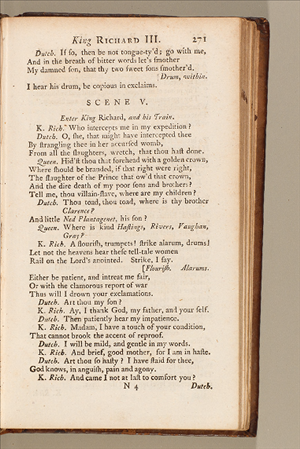 King RICHARD III. 271
Dutch. If so, then be not tongue-ty'd; go with me,
And in the breath of bitter words let's smother
My damned son, that thy two sweet sons smother'd.
[Drum, within.
I hear his drum, be copious in exclaims.
SCENE V.
Enter King Richard, and his Train.
K. Rich. Who intercepts me in my expedition?
Dutch. O, she, that might have intercepted thee
By strangling thee in her accursed womb,
From all the slaughters, wretch, that thou hast done.
Queen. Hid'st thou that forehead with a golden crown,
Where should be branded, if that right were right,
The slaughter of the Prince that ow'd that crown,
And the dire death of my poor sons and brothers?
Tell me, thou villain-slave, where are my children?
Dutch. Thou toad, thou toad, where is thy brother
Clarence?
And little Ned Plantagenet, his son?
Queen. Where is kind Hastings, Rivers, Vaughan,
Gray?
K. Rich. A flourish, trumpets! strike alarum, drums!
Let not the heavens hear these tell-tale women
Rail on the Lord's anointed. Strike, I say.
[Flourish. Alarums.
Either be patient, and intreat me fair,
Or with the clamorous report of war
Thus will I drown your exclamations.
Dutch. Art thou my son?
K. Rich. Ay, I thank God, my father, and your self.
Dutch. Then patiently hear my impatience.
K. Rich. Madam, I have a touch of your condition,
That cannot brook the accent of reproof.
Dutch. I will be mild, and gentle in my words.
K. Rich. And brief, good mother, for I am in haste.
Dutch. Art thou so hasty? I have staid for thee,
God knows, in anguish, pain and agony.
K. Rich. And came I not at last to comfort you?
N 4 Dutch.